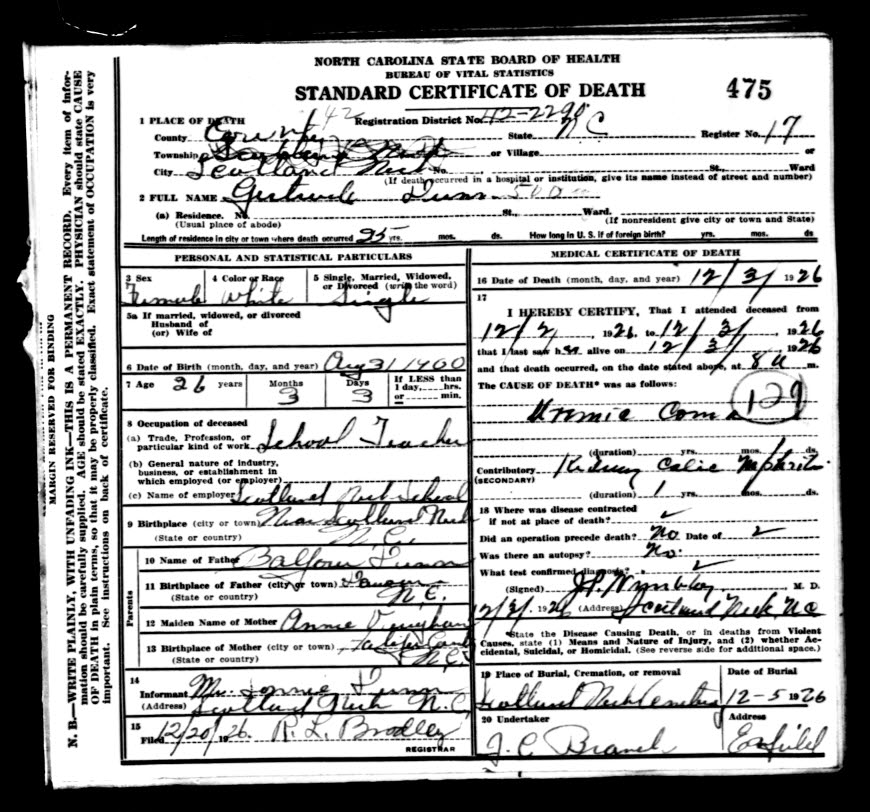 NORTH CAROLINA STATE BOARD OF HEALTH
BUREAU OF VITAL STATISTICS
STANDARD CERTIFICATE OF DEATH
475
42
1 PLACE OF DEATH Registration District No. 42-2290
County State N C Register No. 17
Township or Village or
City Scotland Neck No. St., Ward
(If death occurred in a hospital or institution, give its name instead of street and number)
2 FULL NAME Gertrude
(a) Residence. No. St., Ward.
(Usual place of abode) (If nonresident give city or town and State)
Length of residence in city or town where death occurred 25 yrs. mos. ds. How long in U. S. if of foreign birth? yrs. mos. ds
PERSONAL AND STATISTICAL PARTICULARS
3 Sex 4 Color or Race 5 Single, Married, Widowed, or Divorced (write the word)
Female White Single
5a If married, widowed, or divorced
Husband of
(or) Wife of
6 Date of Birth (month, day, and year) Aug 31 1900
7 Age 26 years Months 3 Days 3 If LESS than 1 day, hrs. or min.
8 Occupation of deceased
(a) Trade, Profession, or particular kind of work School Teacher
(b) General nature of industry, business, or establishment in which employed (or employer)
(c) Name of employer Scotland Neck School
9 Birthplace (city or town) Near Scotland Neck
(State or country) N C
Parents
10 Name of Father Balfour
11 Birthplace of Father (city or town)
(State or country) N.C.
12 Maiden Name of Mother Annie Vaughan
13 Birthplace of Mother (city or town)
(State or country) N.C.
14
Informant
(Address) Scotland Neck N.C.
15
Filed 12/20/1926. R. L. Bradley
REGISTRAR
MEDICAL CERTIFICATE OF DEATH
16 Date of Death (month, day, and year) 12/3/1926
17
I HEREBY CERTIFY, That I attended deceased from
12/2, 1926. to 12/3, 1926
that I last saw her alive on 12/3, 1926
and that death occurred, on the date stated above, at 8 a m.
The CAUSE OF DEATH* was as follows:
Uremic Coma 129
(duration) yrs. mos. ds.
Contributory Kidney Colic Nephritis
(SECONDARY)
(duration) 1 yrs. mos. ds.
18 Where was disease contracted
if not at place of death? ✓
Did an operation precede death? No Date of
Was there an autopsy? No.
What test confirmed diagnosis? ✓
(Signed) M. D.
12/3/, 1926 (Address) Scotland Neck NC
*State the Disease Causing Death, or in deaths from Violent
Causes, state (1) Means and Nature of Injury, and (2) whether Ac-
cidental, Suicidal, or Homicidal. (See reverse side for additional space.)
19 Place of Burial, Cremation, or removal Date of Burial
Scotland Neck Cemetery 12-5 1926
20 Undertaker Address
J. C. Branch Enfield
MARGIN RESERVED FOR BINDING
N. B.—WRITE PLAINLY, WITH UNFADING INK—THIS IS A PERMANENT RECORD. Every item of infor-
mation should be carefully supplied. AGE should be stated EXACTLY. PHYSICIAN should state CAUSE
OF DEATH in plain terms, so that it may be properly classified. Exact statement of OCCUPATION is very
important. See instructions on back of certificate.